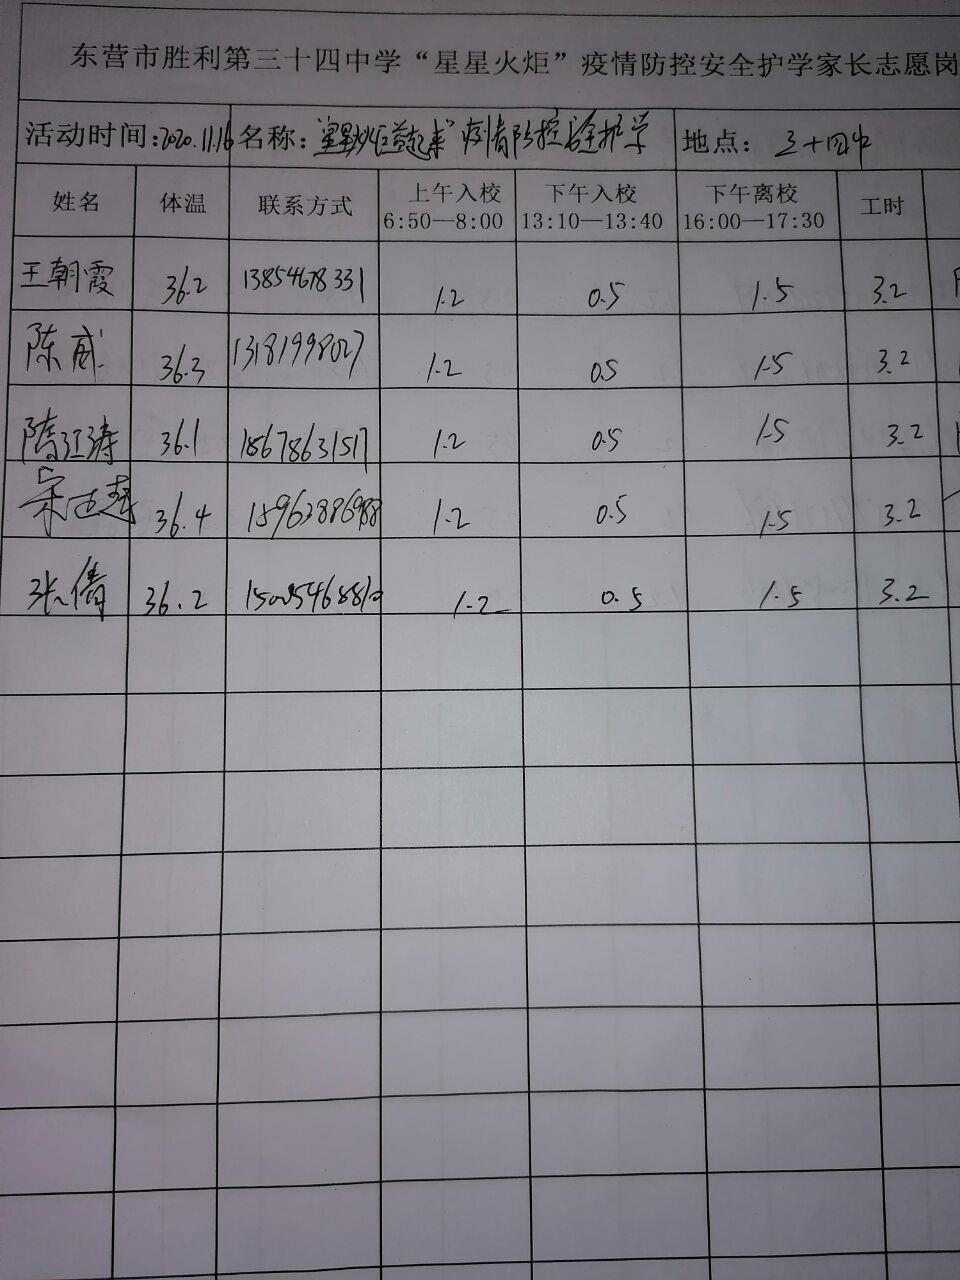 东营市胜利第三十四中学“星星火炬”疫情防控安全护学家长志愿岗
活动时间:2020.11.16 名称:“星星火炬益起来”疫情防控安全护学 地点: 三十四中
姓名 体温 联系方式 上午入校 下午入校 下午离校 工时
6:50—8:00 13:10—13:40 16:00—17:30
王朝霞 36.2 13854678331 1.2 0.5 1.5 3.2
陈威 36.3 13181998027 1.2 0.5 1.5 3.2
隋江涛 36.1 18678631517 1.2 0.5 1.5 3.2
宋 36.4 15962886988 1.2 0.5 1.5 3.2
张倩 36.2 1.2 0.5 1.5 3.2